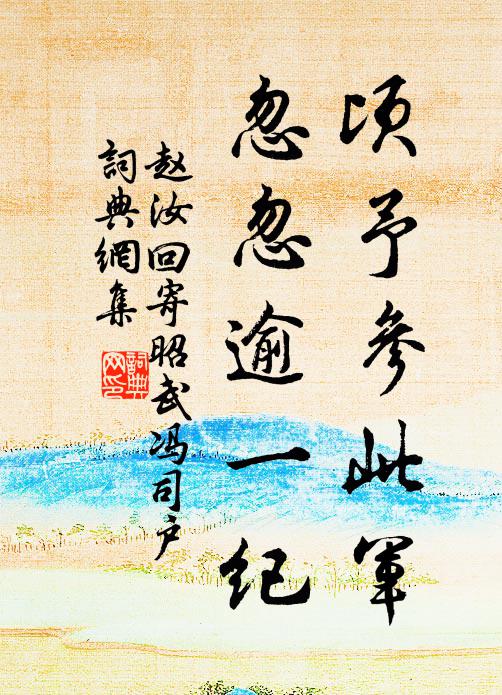 顷予參此軍
忽忽逾一纪
赵汝回寄昭武冯司户
詞典網集
詞典网印